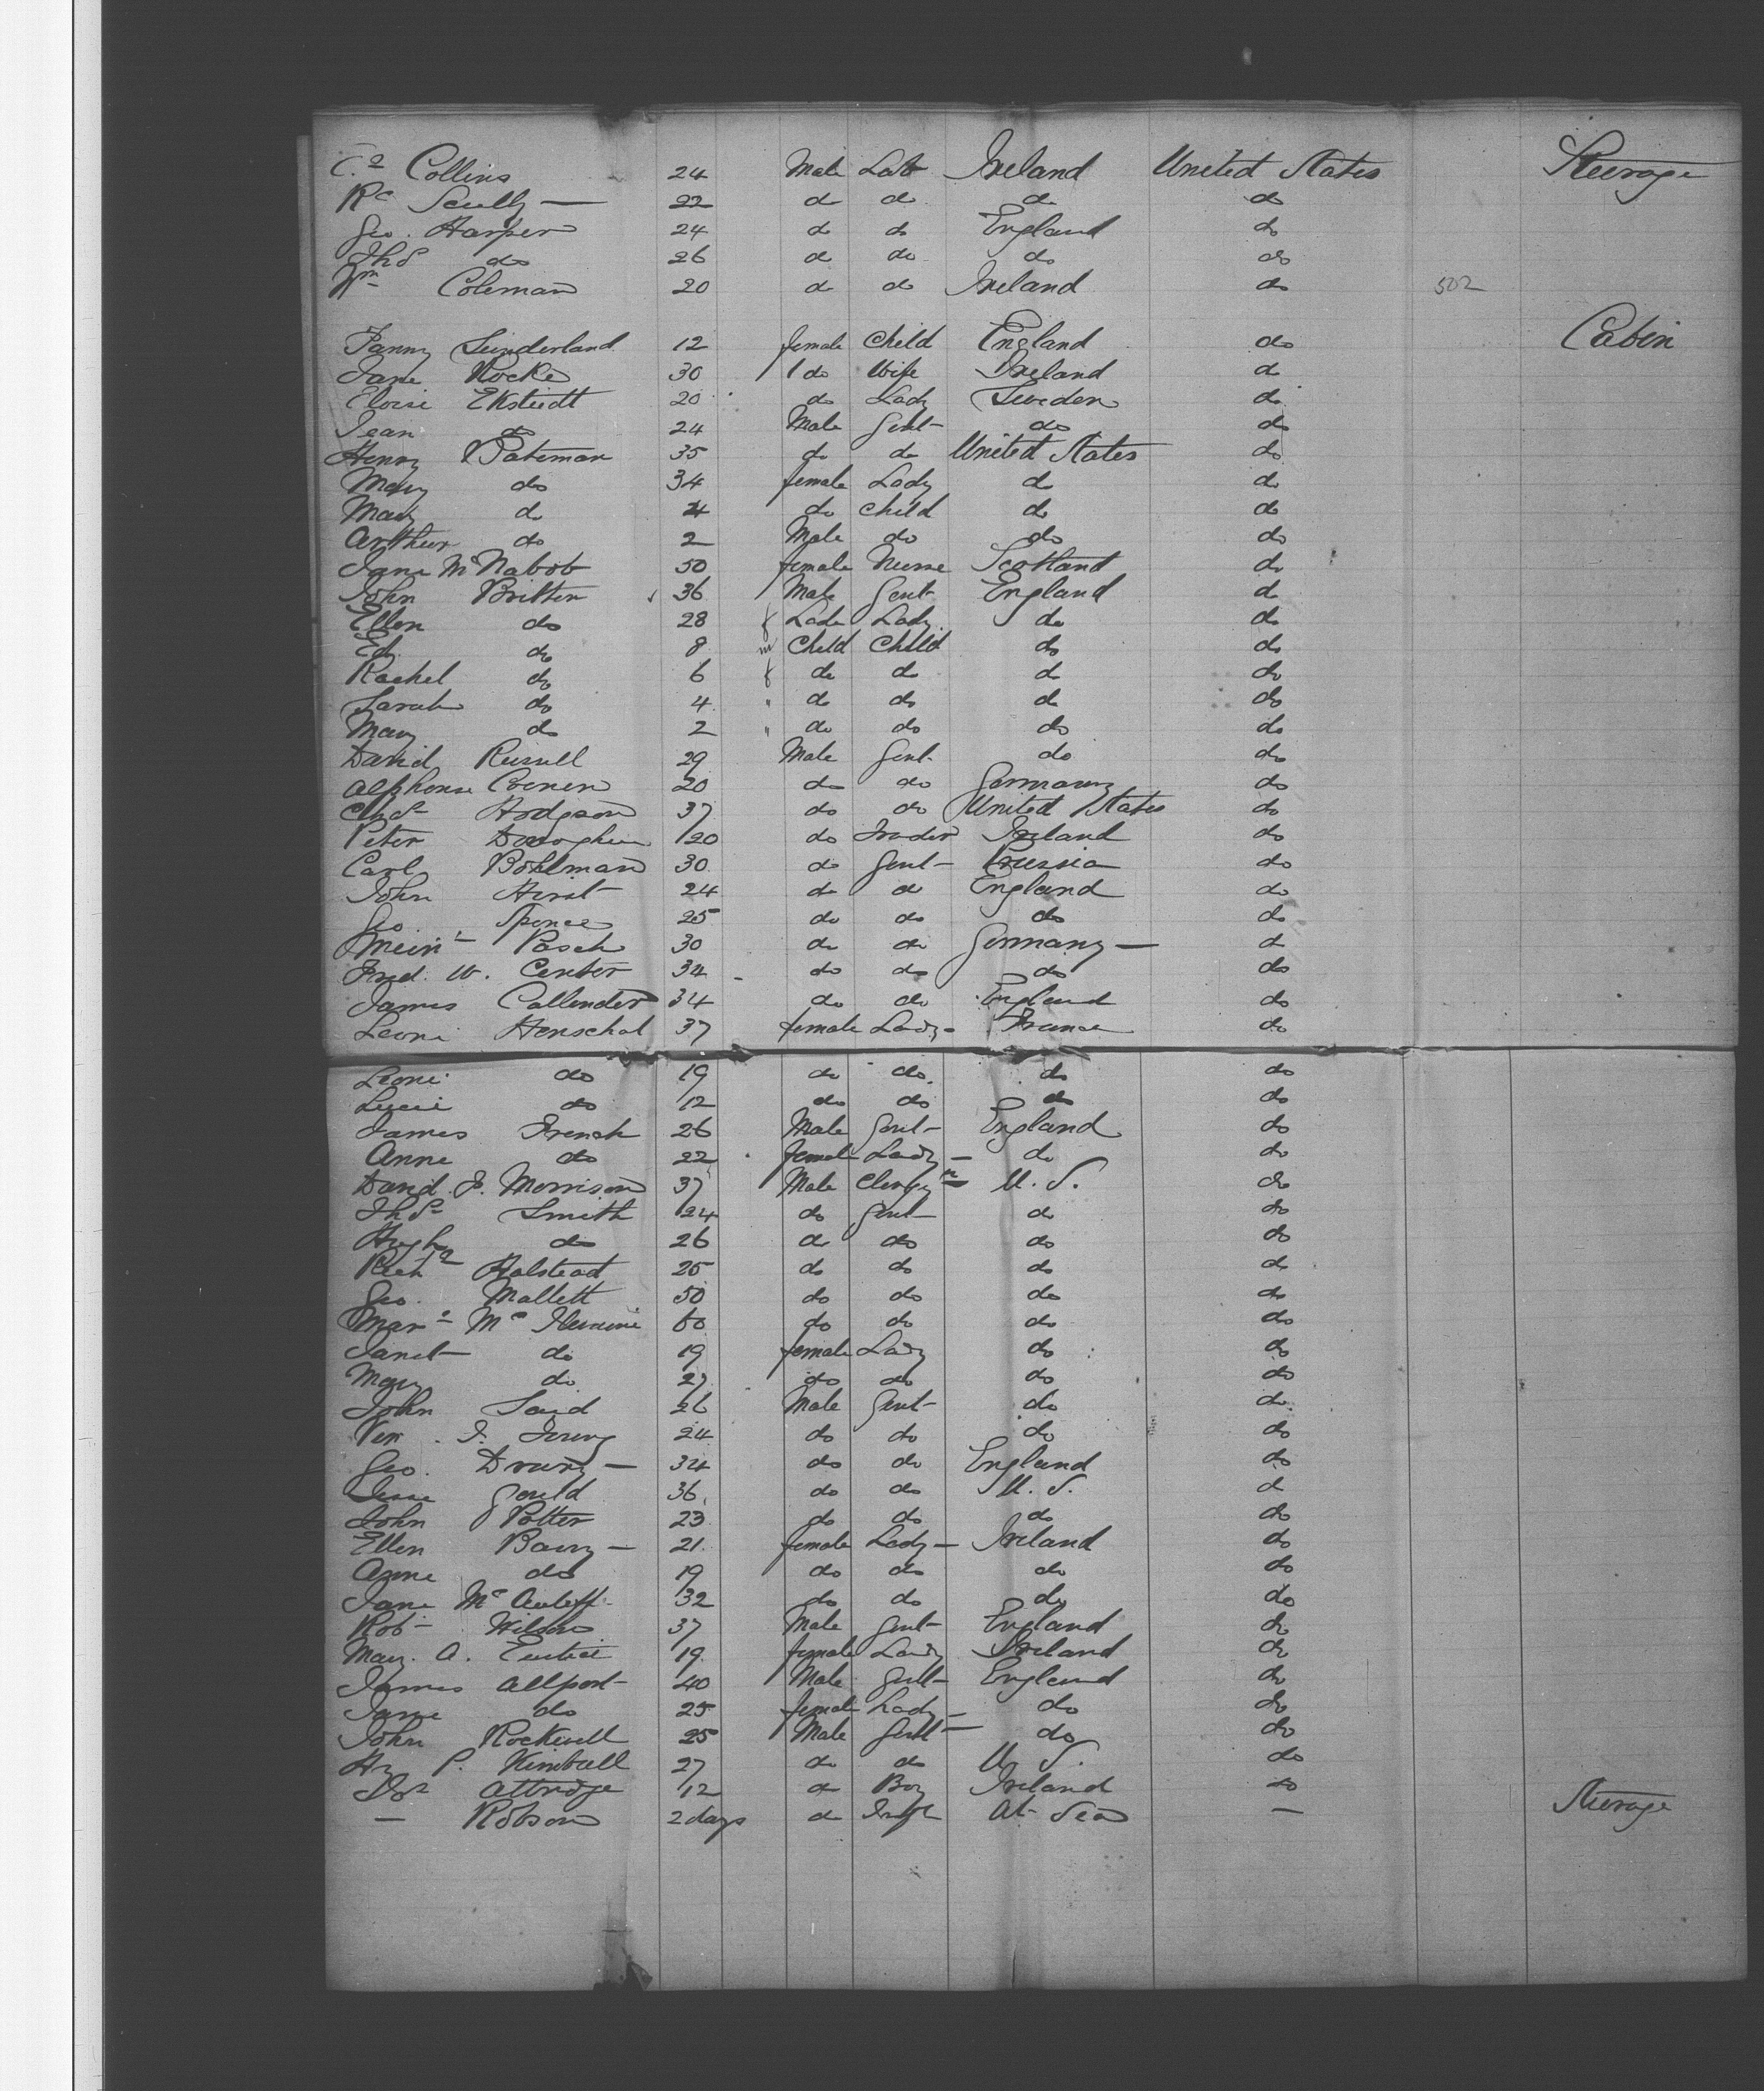 Collins 24 Male Lab Ireland United States Steerage
Scully — 22 do do do do
Geo. Harper 24 do do England do
Thos do 26 do do do do
Wm Coleman 20 do do Ireland do 502
Fanny Sunderland 12 female Child England do Cabin
Jane Rocke 30 do Wife Ireland do
Eloise Ekstedt 20 do Lady Sweden do
Jean do 24 Male Gent do do
Henry Bateman 35 do do United States do
Mary do 34 female Lady do do
Mary do 4 do Child do do
Arthur do 2 Male do do do
Jane McNabob 50 female Nurse Scotland do
John Britten 36 Male Gent England do
Ellen do 28 f Lade Lady do do
Ed do 8 m Child Child do do
Rachel do 6 f do do do do
Sarah do 4 " do do do do
Mary do 2 " do do do do
David Russell 29 Male Gent do do
Alphonse Coenen 20 do do Germany do
Chas Hodgson 37 do do United States do
Peter 20 do Trader Ireland do
Carl Bohlman 30 do Gent Prussia do
John Hirst 24 do do England do
Geo Spence 25 do do do do
Pasch 30 do do Germany — do
Fred. W. Center 34 do do do do
James Callender 34 do do England do
Leonie Henschel 37 female Lady France do
Leonie do 19 do do do do
Lucie do 12 do do do do
James French 26 Male Gent England do
Anne do 22 female Lady — do do
David J. Morrison 37 Male Clergyn U.S. do
Thos Smith 24 do Gent do do
Hugh do 26 do do do do
Richd Halstead 25 do do do do
Geo. Mallett 50 do do do do
60 do do do do
Janet do 19 female Lady do do
Mary do 27 do do do do
John Said 26 Male Gent do do
24 do do do do
Geo. Drury — 34 do do England do
Jesse Gould 36 do do U.S. do
John Potter 23 do do do do
Ellen Barry — 21 female Lady — Ireland do
Anne do 19 do do do do
Jane McAuliff 32 do do do do
Robt Wilson 37 Male Gent England do
Mary A. Eustice 19 female Lady Ireland do
James Allport 40 Male Gent England do
Jane do 25 female Lady — do do
John Rockwell 25 Male Gent — do do
Hy P. Kimball 27 do do U.S. do
Attridge 12 do Boy Ireland do
— Robson 2 days do Inft At Sea — Steerage